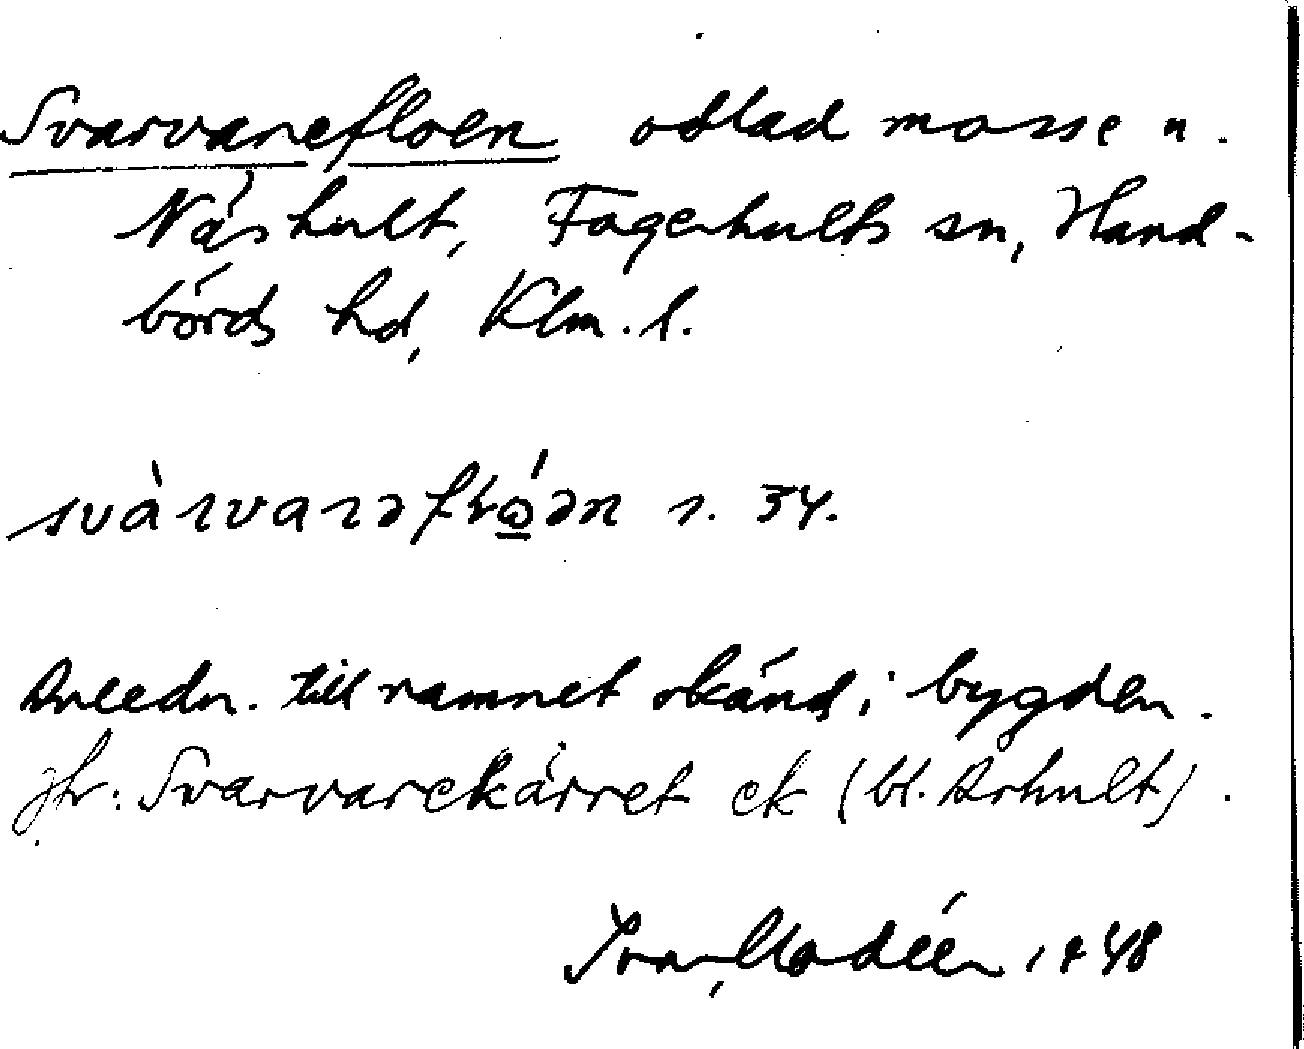 Svarvarefloen odlad mosse u.
Näshult, Fagerhults sn, Hand-
börds hd, Klm. l.
svàrvarəflǫ́ən s. 34.
Anledn. till namnet okänd i bygden.
Jfr: Svarvarekärret ek (bl. Arhult).
Ivar Modéer 1948